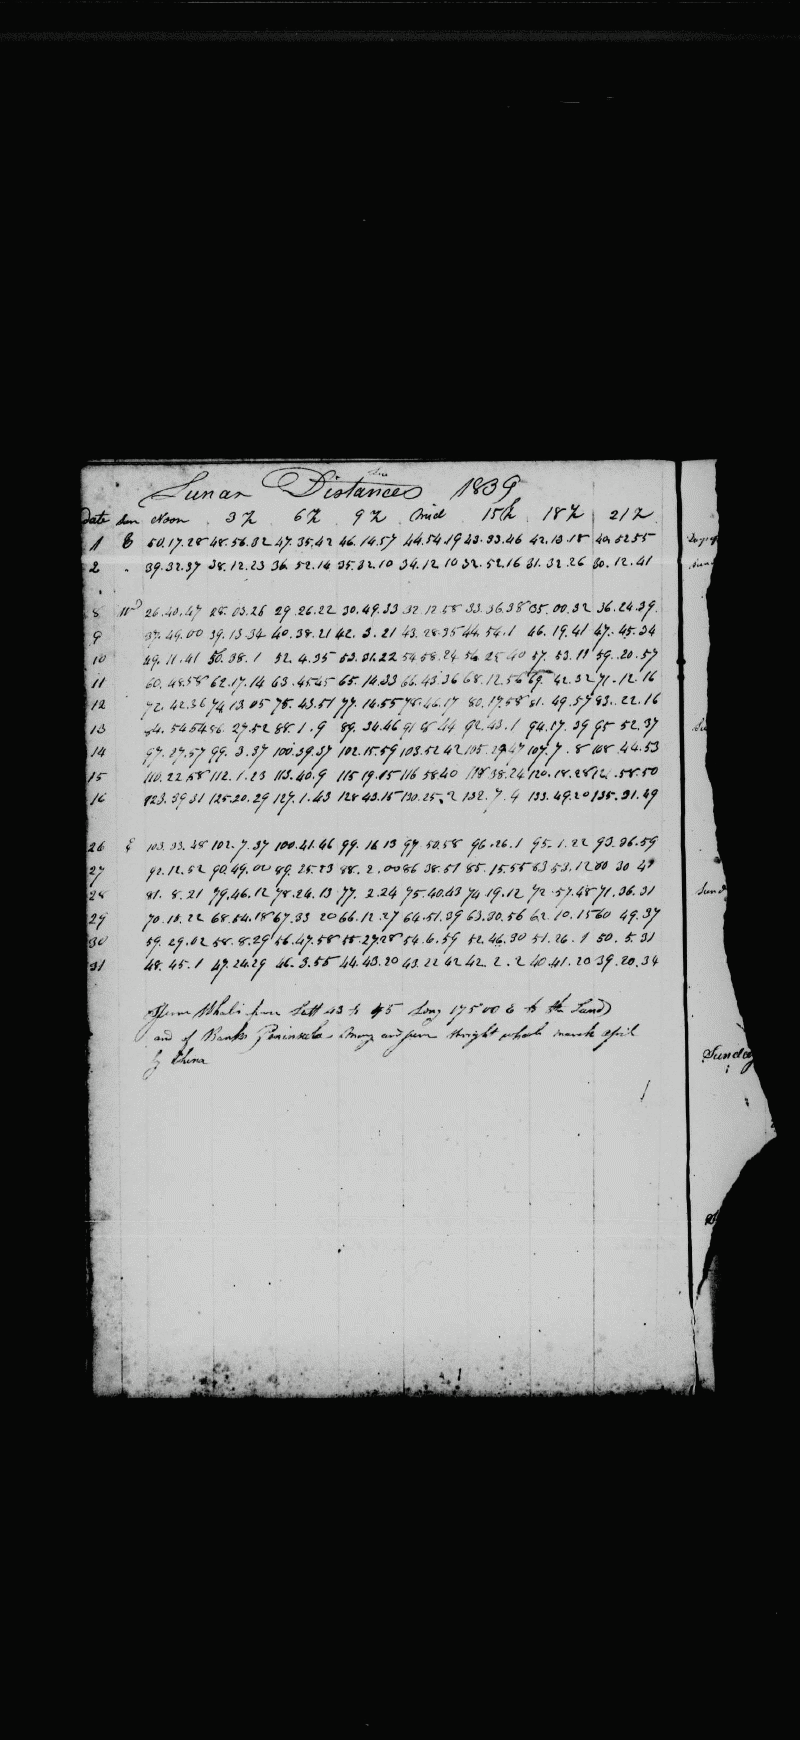 Lunar Distances 1839
Date Sun Noon 3h 6h 9h Mid 15h 18h 21h
1 E 50.17.28 48.56.32 47.35.42 46.14.57 44.54.19 43.33.46 42.13.18 40.52.55
2 " 39.32.37 38.12.23 36.52.14 35.32.10 34.12.10 32.52.16 31.32.26 30.12.41
8 W 26.40.47 28.03.26 29.26.22 30.49.33 32.12.58 33.36.38 35.00.32 36.24.39
9 37.49.00 39.13.34 40.38.21 42.3.21 43.28.35 44.54.1 46.19.41 47.45.34
10 49.11.41 50.38.1 52.4.35 53.31.22 54.58.24 56.25.40 57.53.11 59.20.57
11 60.48.58 62.17.14 63.45.45 65.14.33 66.43.36 68.12.56 69.42.32 71.12.16
12 72.42.36 74.13.05 75.43.51 77.14.55 78.46.17 80.17.58 81.49.57 83.22.16
13 84.54.54 86.27.52 88.1.9 89.34.46 91.8.44 92.43.1 94.17.39 95.52.37
14 97.27.57 99.3.37 100.39.37 102.15.59 103.52.42 105.29.47 107.7.8 108.44.53
15 110.22.58 112.1.23 113.40.9 115.19.15 116.58.40 118.38.24 120.18.28 121.58.50
16 123.39.31 125.20.29 127.1.43 128.43.15 130.25.2 132.7.4 133.49.20 135.31.49
26 E 103.33.48 102.7.37 100.41.46 99.16.13 97.50.58 96.26.1 95.1.22 93.36.59
27 92.12.52 90.49.00 89.25.23 88.2.00 86.38.51 85.15.55 83.53.12 80 30 41
28 81.8.21 79.46.12 78.24.13 77.2.24 75.40.43 74.19.12 72.57.48 71.36.31
29 70.15.22 68.54.18 67.33.20 66.12.27 64.51.39 63.30.56 62.10.15 60 49.37
30 59.29.02 58.8.29 56.47.58 55.27.28 54.6.59 52.46.30 51.26.1 50.5.31
31 48.45.1 47.24.29 46.3.55 44.43.20 43.22.42 42.2.2 40.41.20 39.20.34
Whals from Latt 43 to 45 Long 175 00 E to the Land
and of Banks Peninsula May and June wright whals march april
Sund
Sunday